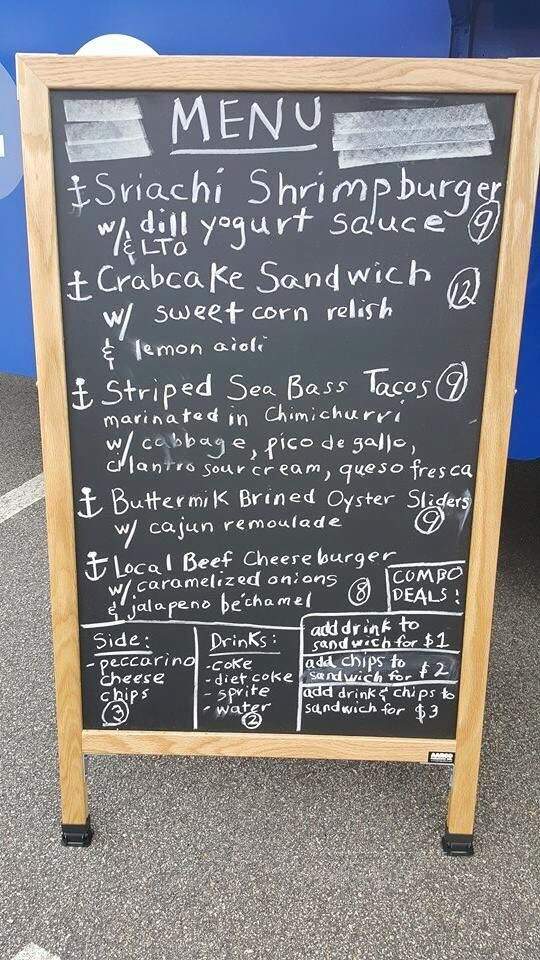 MENU
Sriachi Shrimpburger
w/ dill yogurt sauce 9
& LTO
Crabcake Sandwich 12
w/ sweet corn relish
& lemon aioli
Striped Sea Bass Tacos 9
marinated in Chimichurri
w/ cabbage, pico de gallo,
cilantro sour cream, queso fresca
Buttermilk Brined Oyster Sliders
w/ cajun remoulade 9
Local Beef Cheeseburger
w/ caramelized onions
& jalapeno béchamel 8
COMBO
DEALS!
add drink to
sandwich for $1
add chips to
sandwich for $2
add drink & chips to
sandwich for $3
Side:
- peccarino
cheese
chips
3
Drinks:
- coke
- diet coke
- sprite
- water
2